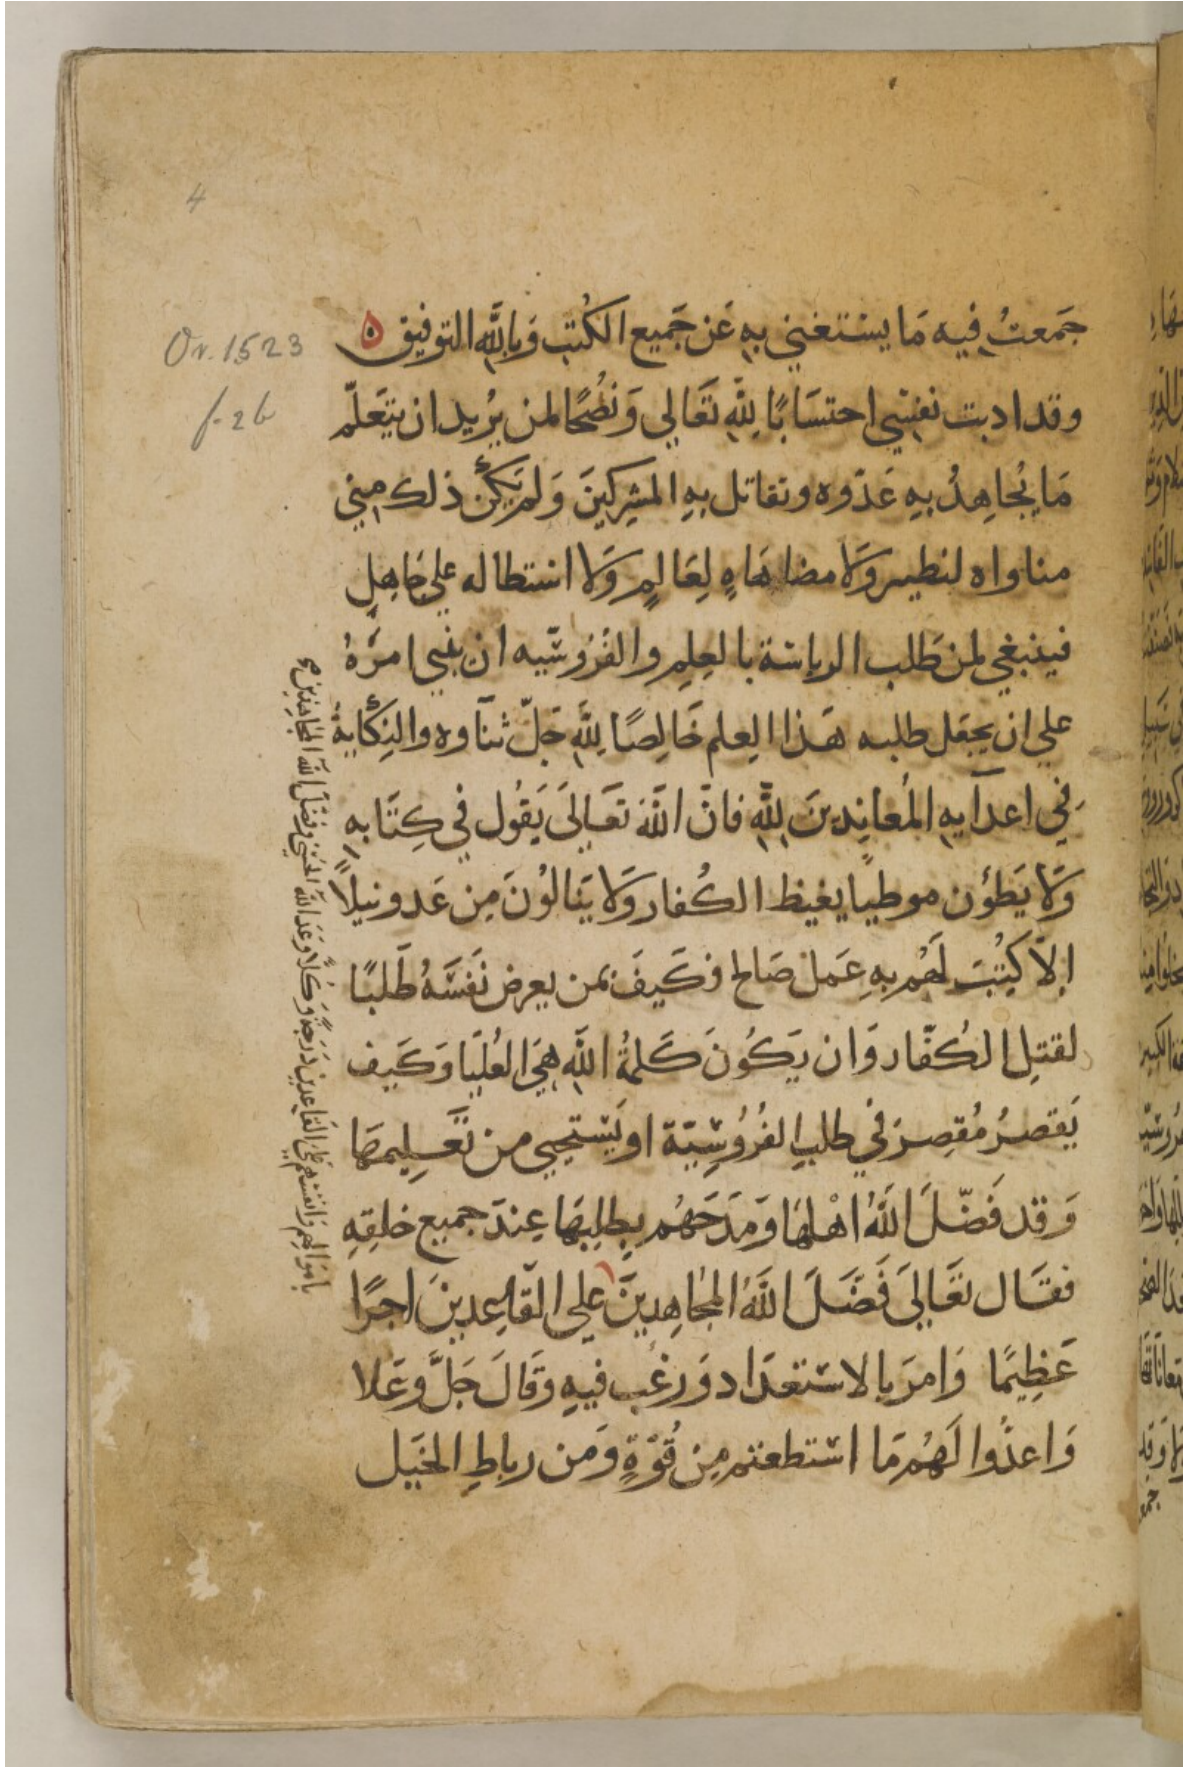 4
Or. 1523
f. 2b
جَمعتُ فيه مَا يستغني بِهِ عَن جَميع الكُتب وَبِاللَّهِ التوفيق ه
وقد ادبت نفسِي احتسَابًا لِلَّهِ تَعَالي وَنُصُحًا لمن يُريد ان يتَعَلّم
مَا يُجَاهِدُ بِهِ عَدّوه وتقاتل بِهِ المشِركينَ وَلم يَكُن ذلك مِني
مناواه لنظير وَلا مضاهَاهٍ لِعَالِمٍ وَلا استطاله علي جَاهِلٍ
فينبغي لمن طَلب الرياسَة بالعِلمِ والفُرُوسّيه ان يبني امرَهُ
علي ان يجعَل طلبه هَذا العِلم خَالِصًا لِلَّهِ جَلّ ثنَآوه والنِكَايةُ
فِي اعدآيهِ المُعانِدِينَ لِلَّهِ فانّ اللَّهَ تعَالىَ يَقُول في كِتَابِهِ
وَلَا يَطؤن موطيًا يغيظ الكُفار وَلَا يَنالُونَ مِن عَدو نيلاً
اِلاّ كُتِبَ لَهُم بِهِ عَمل صَالح فكَيفَ بمن يعرض نَفسَهُ طَلَبًا
لقتلِ الكُفّار وَان يَكُونَ كَلمةُ اللَّهِ هِيَ العُليَا وَكَيف
يَقصرُ مُقصِرَ في طلبِ الفُرُوسِيّة او يَستحيي من تَعَلِيمهَا
وَقد فَضّلَ اللَّهُ اهْلهَا وَمَدَحَهُم بِطلِبهَا عِندَ جميع خلقِهِ
فقَال تعَالىَ فَضَّلَ اللَّهُ المجُاهِدينَ علي القَاعِدينَ اجرًا
عَظِيمًا وَامرَ بالاستعَدَاد وَرغب فيهِ وَقَالَ جَلَّ وعَلا
وَاعدُّوا لَهُم مَا استطعتم مِن قُوّةٍ وَمن رباطِ الخيَل
باموَالهِم وَانفسهم عَلَى القَاعِدِينَ دَرَجَةً وَكُلاً وَعَدَ اللَّه الحُسنَى وفَضّلَ اللَّه المجَاهِدِين